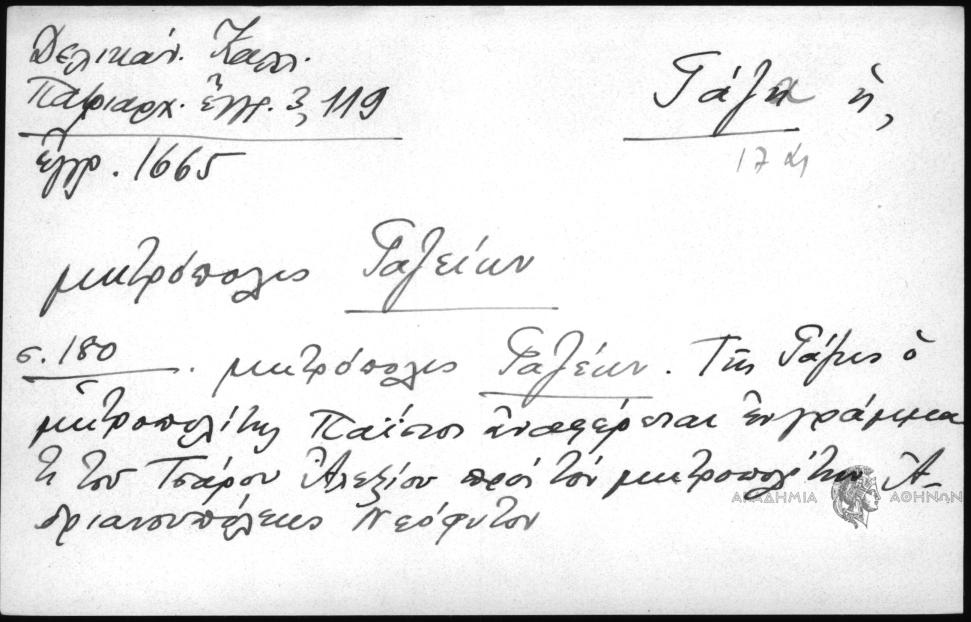 Δελικάν. Καλλ.
Πατριαρχ. ἔγγρ. 3, 119
ἔγγρ. 1665
Γάζα ἡ,
17
μητρόπολις Γαζείων
σ. 180. μητρόπολις Γαζέων. Τῆς Γάζης ὁ
μητροπολίτης Παΐσιος ἀναφέρεται ἐν γράμμα
τι τοῦ Τσάρου Ἀλεξίου πρὸς τὸν μητροπολίτην Ἀ-
δριανουπόλεως Νεόφυτον
ΑΚΑΔΗΜΙΑ ΑΘΗΝΩΝ